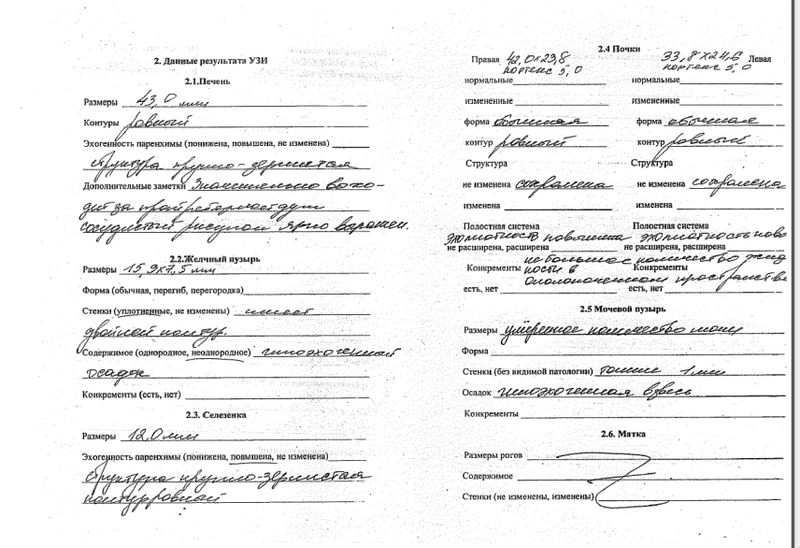 2. Данные результата УЗИ
2.1.Печень
Размеры 43,0 мм
Контуры ровный
Эхогенность паренхимы (понижена, повышена, не изменена)
структура крупно-зернистая
Дополнительные заметки Значительно выхо-
дит за край реберной дуги
сосудистый рисунок ярко выражен.
2.2.Желчный пузырь
Размеры 15,9х7,5 мм
Форма (обычная, перегиб, перегородка)
Стенки (уплотненные, не изменены) имеет
двойной контур.
Содержимое (однородное, неоднородное) гипоэхогенный
осадок
Конкременты (есть, нет)
2.3. Селезенка
Размеры 12,0 мм
Эхогенность паренхимы (понижена, повышена, не изменена)
структура крупно-зернистая
контур ровный
2.4 Почки
Правая 42,0х29,8 33,8х24,6 Левая
кортекс 5,0 кортекс 5,0
нормальные нормальные
измененные измененные
форма обычная форма обычная
контур ровный контур ровный
Структура Структура
не изменена сохранена не изменена сохранена
изменена изменена
Полостная система Полостная система
эхоплотность повышена эхоплотность пов
не расширена, расширена не расширена, расширена
небольшое количество жид
Конкременты кости в Конкременты
околопочечном пространстве
есть, нет есть, нет
2.5 Мочевой пузырь
Размеры умеренное количество мочи
Форма
Стенки (без видимой патологии) тонкие 1 мм
Осадок гипоэхогенная взвесь
Конкременты
2.6. Матка
Размеры рогов
Содержимое
Стенки (не изменены, изменены)